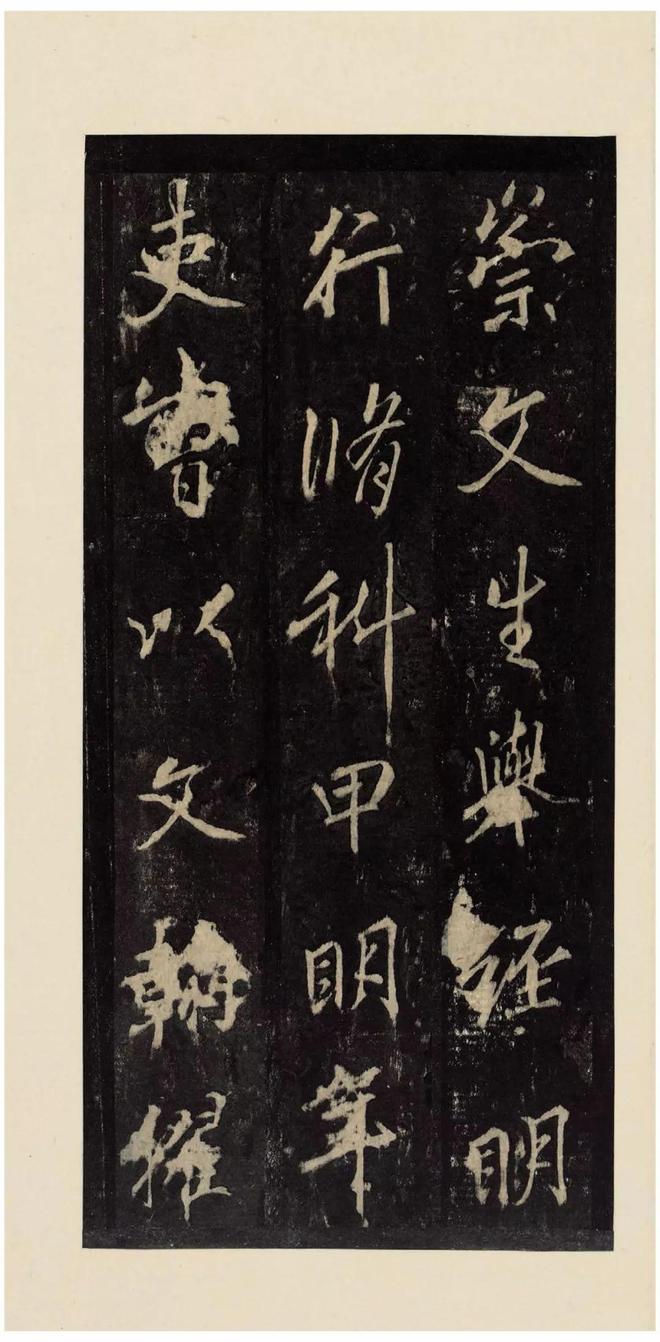 崇文生舉經明
行脩科甲明年
吏曹以文翰擢